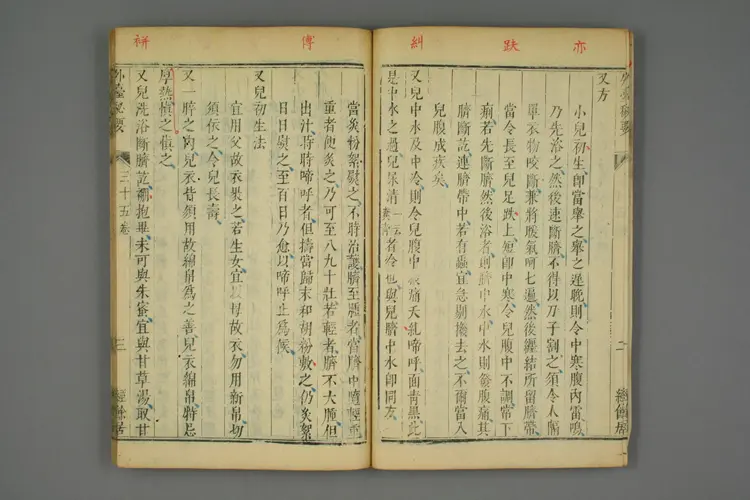 亦
跌
糾
又方
小兒初生即當舉之舉之遲晚則令中寒腹內雷鳴
乃先浴之然後連斷臍不得以刀子割之須令人隔
單衣物咬斷兼將暖氣呵七遍然後纏結所留臍帶
當令長至兒足趺上短即中寒令兒腹中不調常下
痢若先斷臍然後浴者則臍中水中水則發腹痛其
臍斷訖連臍帶中若有蟲宜急剔撥去之不爾當入
兒腹成疾矣
又兒中水及中冷則令兒腹中痛夭糺啼呼面青黑此
是中水之過兒尿清者冷也與兒臍中水即同友
傅
栟
當炙粉絮熨之不時治護臍至腫者當隨輕重
重者便炙之乃可至八九十壯若輕者臍不大腫但
出汁時時啼呼者但擣當歸末和胡粉敷之仍炙絮
日日熨之至百日乃愈以啼呼止為候
又兒初生法
宜用父故衣裹之若生女宜以母故衣勿用新帛切
須依之令兒長壽
又一脖之內兒衣皆須用故綿帛為之善兒衣綿帛特忌
厚熱慎之慎之
又兒洗浴斷臍訖襁抱畢未可與朱蜜宜與甘草湯取甘
外臺秘要
三十五卷
三
經餘居